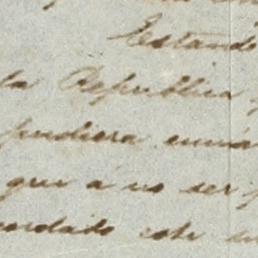 Estando
la Republica
pudiera
que a no ser
este